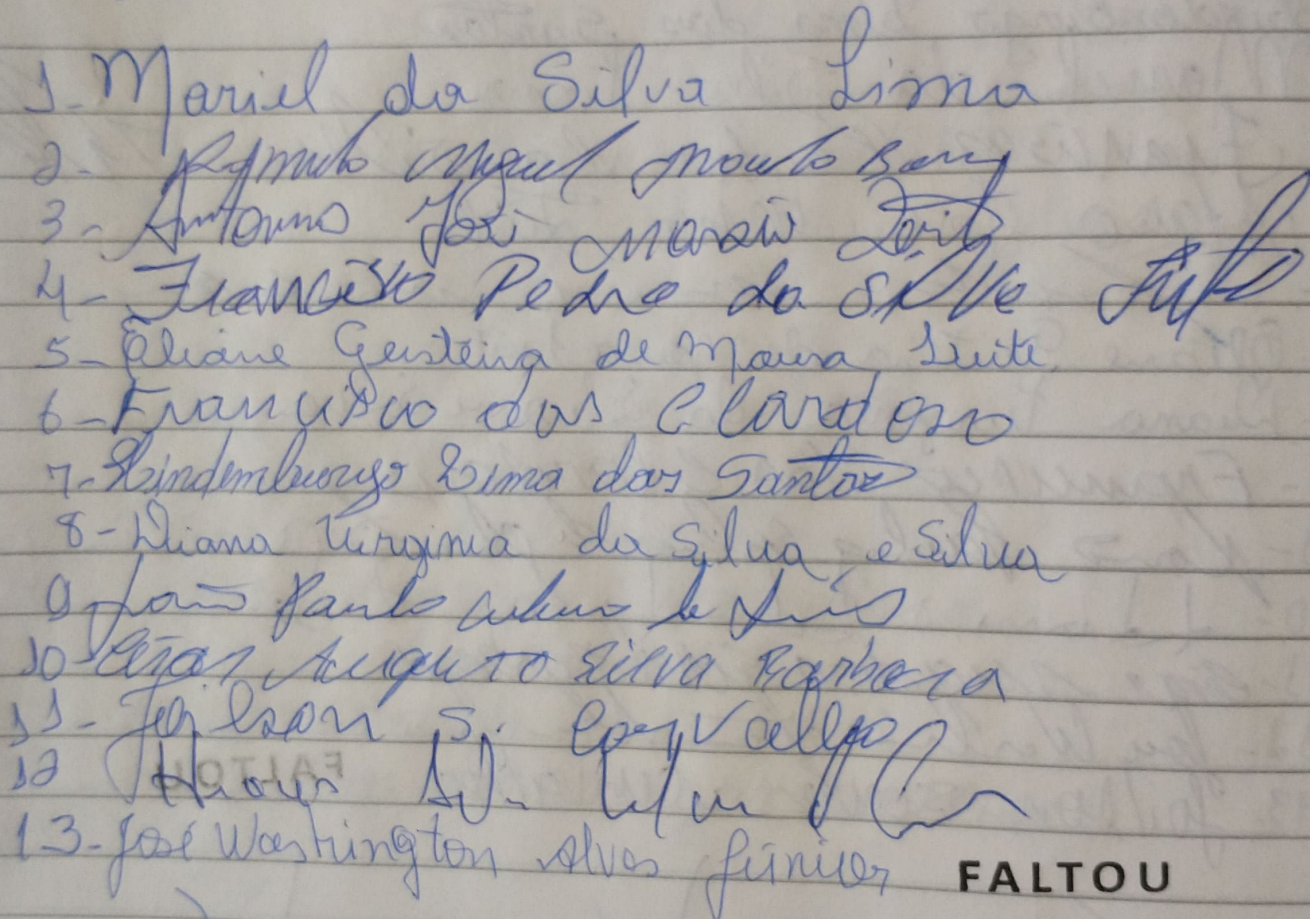 1- Mariel da Silva Lima
2- Rômulo Miguel
3- Antonio José
4- Francisco Pedro da Silva
5- Eliane Gersteira de Moura Leite
6- Francisco das C Cardoso
7- Hindemburgo Lima dos Santos
8- Diana Virginia da Silva e Silva
9- João Paulo
10- Cezar Augusto Silva Barbosa
11- Joilson S. Carvalho
12
13- José Washington Alves Júnior FALTOU